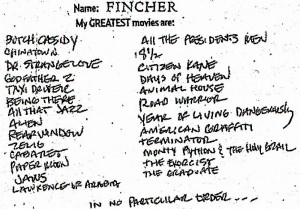 Name: FINCHER
My GREATEST movies are:
BUTCH CASSIDY
CHINATOWN
DR. STRANGELOVE
GODFATHER 2
TAXI DRIVER
BEING THERE
ALL THAT JAZZ
ALIEN
REAR WINDOW
ZELIG
CABARET
PAPER MOON
JAWS
LAWRENCE OF ARABIA
ALL THE PRESIDENTS MEN
8 1/2
CITIZEN KANE
DAYS OF HEAVEN
ANIMAL HOUSE
ROAD WARRIOR
YEAR OF LIVING DANGEROUSLY
AMERICAN GRAFFITI
TERMINATOR
MONTY PYTHON & THE HOLY GRAIL
THE EXORCIST
THE GRADUATE
IN NO PARTICULAR ORDER ---